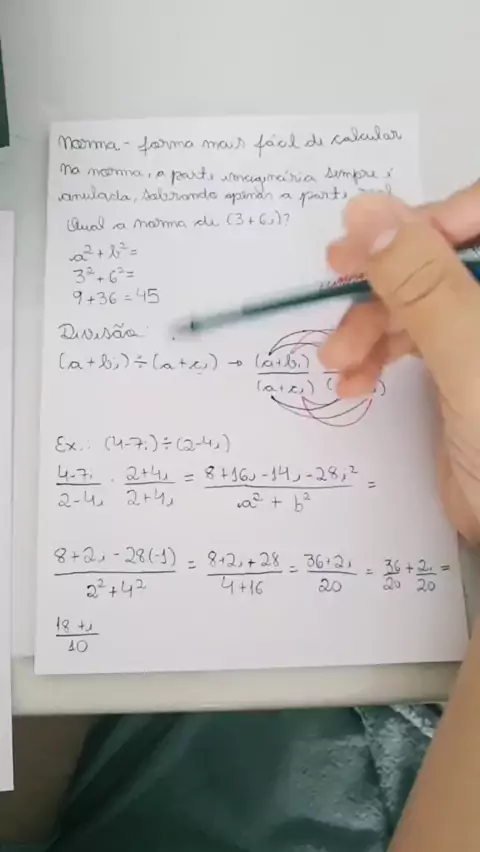 Norma - forma mais fácil de calcular
Na norma, a parte imaginária sempre é
anulada, sobrando apenas a parte
Qual a norma de (3+6i)?
a²+b²=
3²+6²=
9+36=45
Divisão:
(a+bi)÷(a+ci) → (a+bi)/(a+ci)
Ex.: (4-7i)÷(2-4i)
(4-7i)/(2-4i) · (2+4i)/(2+4i) = (8+16i-14i-28i²)/(a²+b²) =
(8+2i-28(-1))/(2²+4²) = (8+2i+28)/(4+16) = (36+2i)/20 = 36/20 + 2i/20 =
(18+i)/10